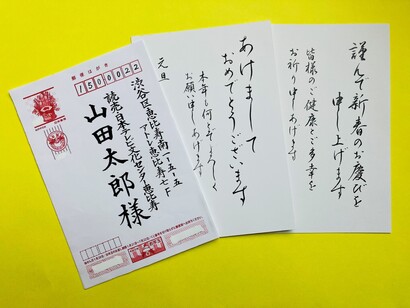 郵便はがき
1500022
渋谷区恵比寿南一-五-五
アトレ恵比寿七F
読売・日本テレビ文化センター恵比寿
山田太郎様
あけまして
おめでとうございます
本年も何とぞよろしく
お願い申しあげます
元旦
謹んで新春のお慶びを
申し上げます
皆様のご健康とご多幸を
お祈り申しあげます